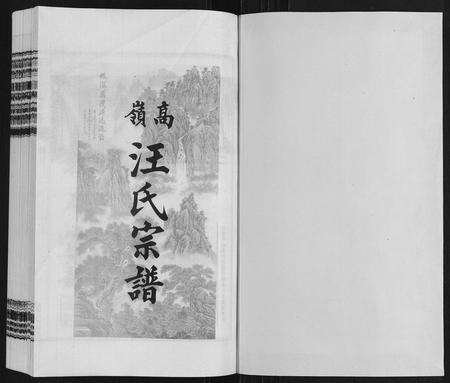 高嶺
汪氏宗譜